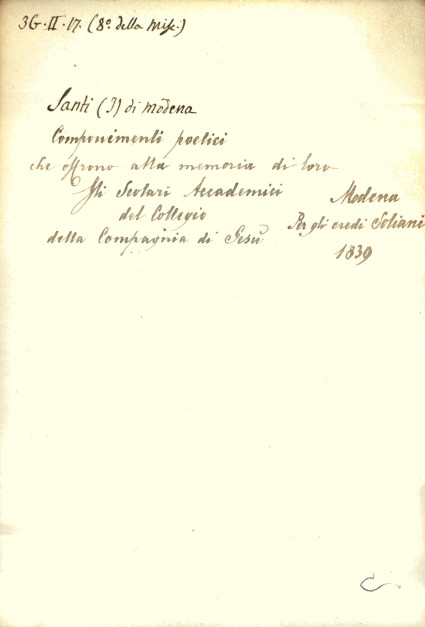 36.II.17. (8º. della Misc.)
Santi (I) di Modena
Componimenti poetici
che offrono alla memoria di loro
Gli Scolari Accademici
del Collegio
della Compagnia di Gesù
Modena
Per gli eredi Soliani
1839